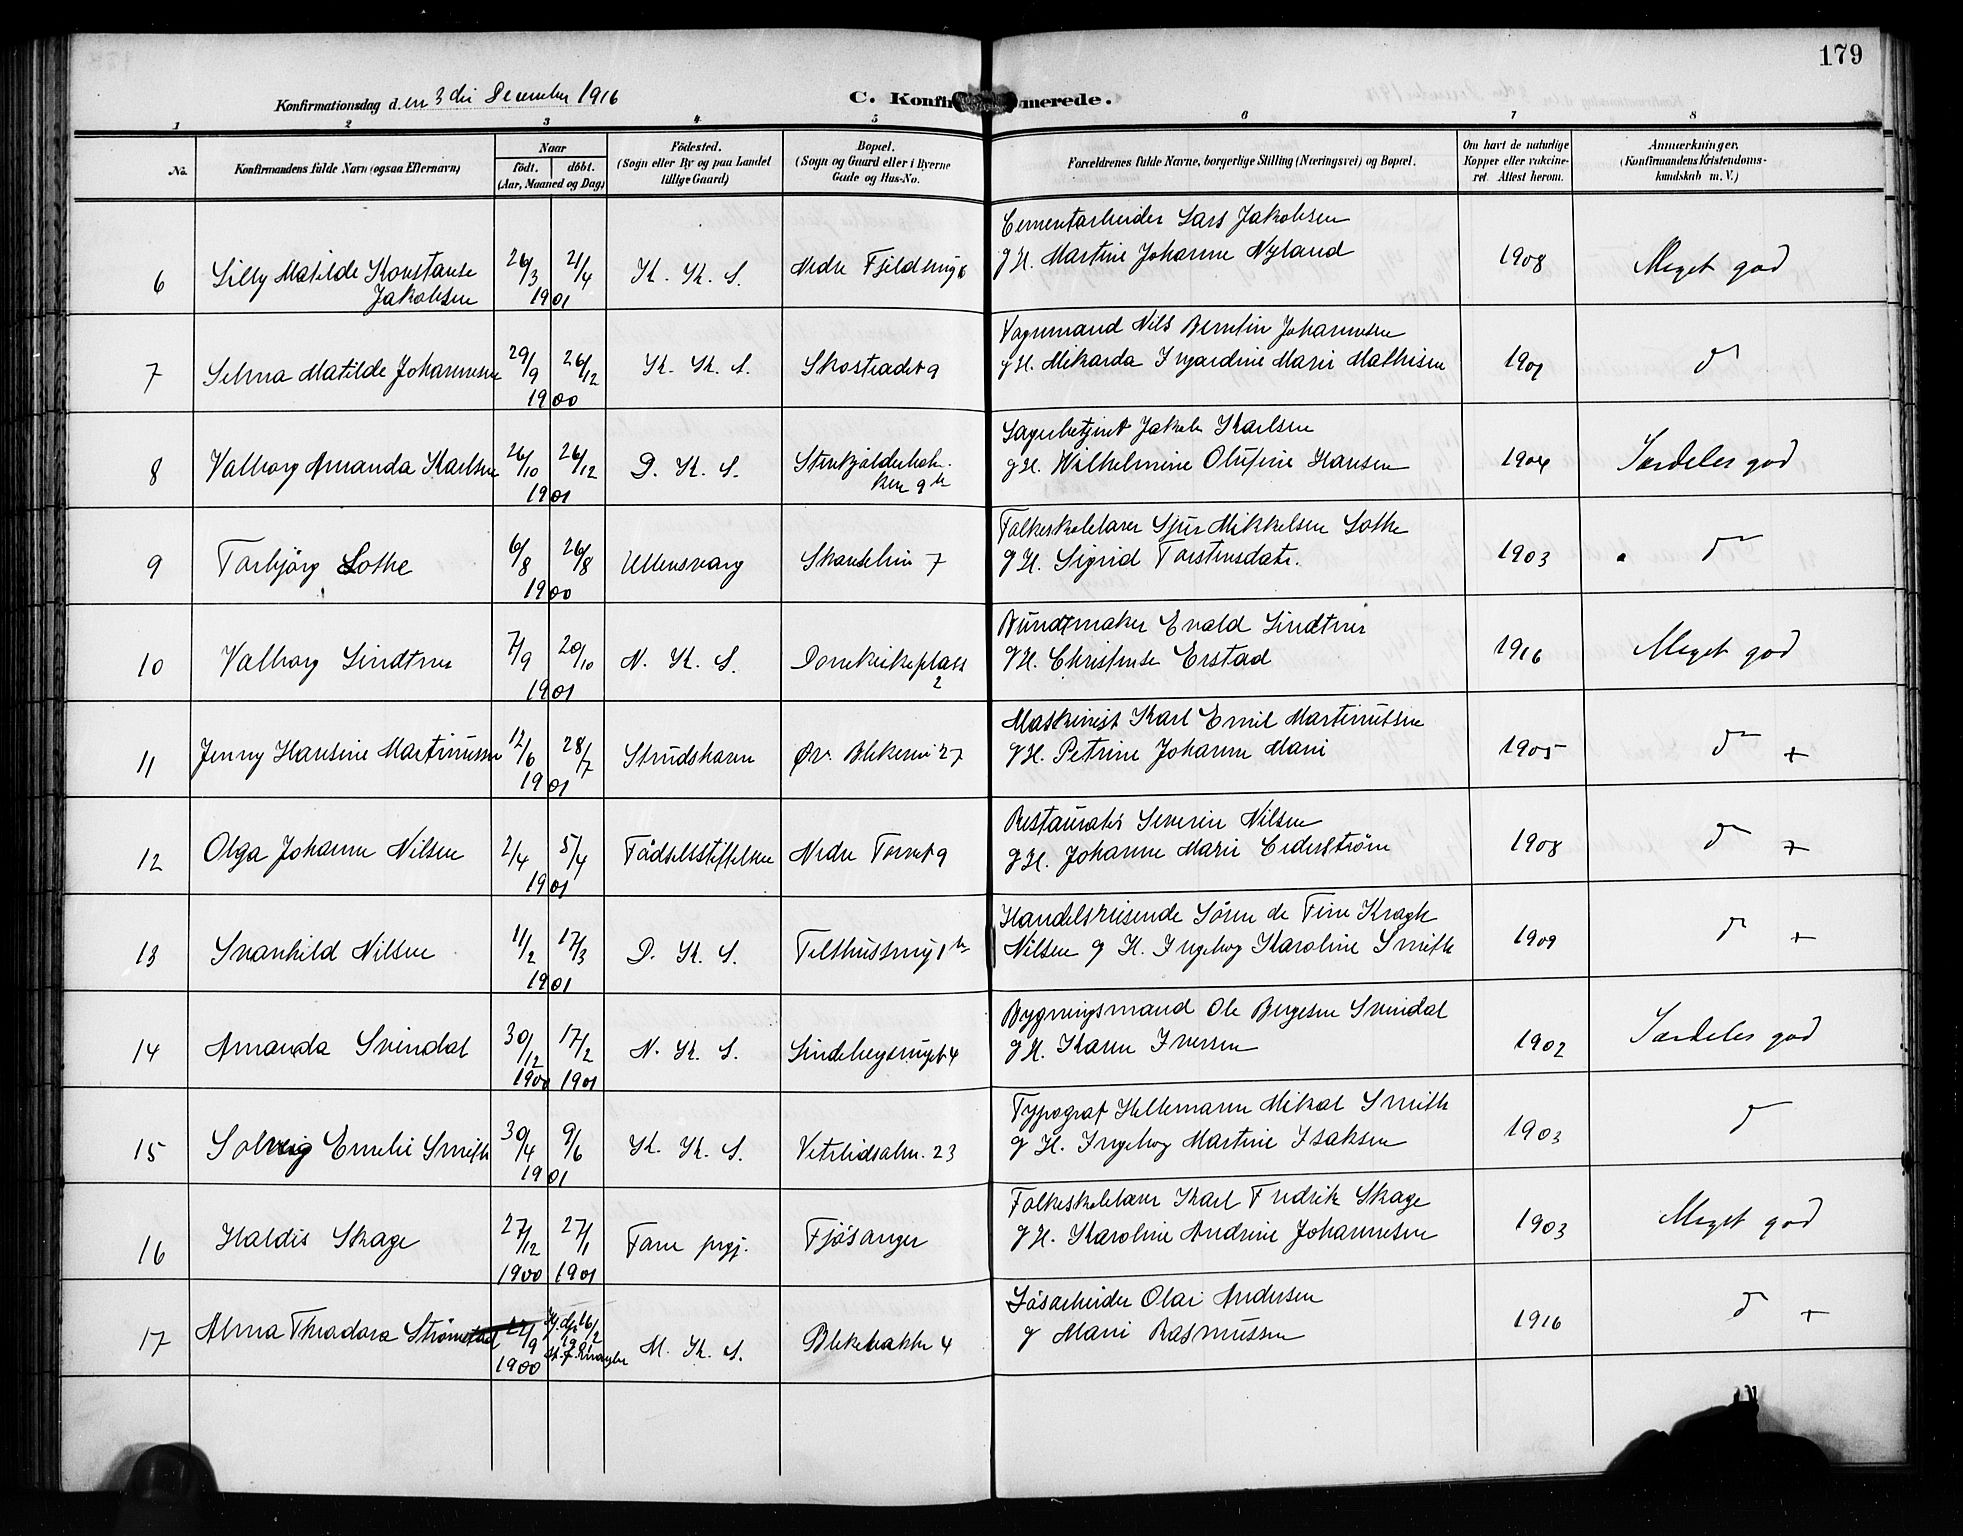 179
Konfirmationsdag den 3die December 1916
C. Konfirmerede.
1 2 3 4 5 6 7 8
No.
Konfirmandens fulde Navn (ogsaa Efternavn)
Naar
født. døbt.
(Aar, Maaned og Dag)
Fødested.
(Sogn eller By og paa Landet
tillige Gaard)
Bopæl.
(Sogn og Gaard eller i Byerne
Gade og Hus-No.
Forældrenes fulde Navne, borgerlige Stilling (Næringsvei) og Bopæl.
Om havt de naturlige
Kopper eller vakcine-
ret. Attest herom.
Anmærkninger.
(Konfirmandens Kristendoms-
kundskab m. V.)
Cementarbeider Lars Jakobsen
6 Lilly Matilde Konstanse 26/3 21/4 K. K. S. Nedre Fjeldsmug 6 g H. Martine Johanne Nyland 1908 Meget god
Jakobsen 1901
Vognmand Nils Berntin Johannesen
7 Selma Matilde Johannesen 29/9 26/12 K. K. S. Skostradet 9 g H. Mikarda Ingardine Marie Mathisen 1901 do
1900
Lagerbetjent Jakob Karlsen
8 Valborg Amanda Karlsen 26/10 26/12 D. K. S. Stenkjælderbak- g H. Wilhelmine Olufine Hansen 1904 Særdeles god
1901 ken 9 b
Folkeskolelærer Sjur Mikkelsen Lothe
9 Torbjörg Lothe 6/8 26/8 Ullensvang Skanselien 7 g H. Sigrid Torstensdatr. 1903 do
1900
Bundtmaker Evald Lindtner
10 Valborg Lindtner 7/9 20/10 N. K. S. Domkirkeplass g H. Christense Erstad 1916 Meget god
1901 2
Maskinist Karl Emil Martinussen
11 Jenny Hansine Martinussen 12/6 28/7 Strudshavn Øv. Blekevei 27 g H. Petrine Johanne Marie 1905 do +
1901
Restauratør Severin Nilsen
12 Olga Johanne Nilsen 2/4 5/4 Födselsstiftelsen Nedre Torvet 9 g H. Johanne Marie Cederström 1908 do +
1901
Handelsreisende Sören de Fine Kragh
13 Svanhild Nilsen 11/2 17/3 D. K. S. Telthussmug 1 b Nilsen g H. Ingeborg Karoline Smith 1909 do +
1901
Bygningsmand Ole Bergesen Svindal
14 Amanda Svindal 30/12 17/2 N. K. S. Lindebergsmuget 4 g H. Karen Iversen 1902 Særdeles god
1900 1901
Typograf Hellemann Mikal Smith
15 Solveig Emelie Smith 30/4 9/6 K. K. S. Vetrlidsalm. 23 g H. Ingeborg Martine Isaksen 1903 do
1901
Folkeskolelærer Karl Fredrik Skage
16 Haldis Skage 27/12 27/1 Fane prgj. Fjösanger g H. Karoline Andrine Johannesen 1903 Meget god
1900 1901
Lösarbeider Olai Andersen
17 Alma Theodora Strömstad 22/9 Hj. dp. 16/2 M. K. S. Blekebakken 4 g Marie Rasmussen 1916 do +
1900 1901